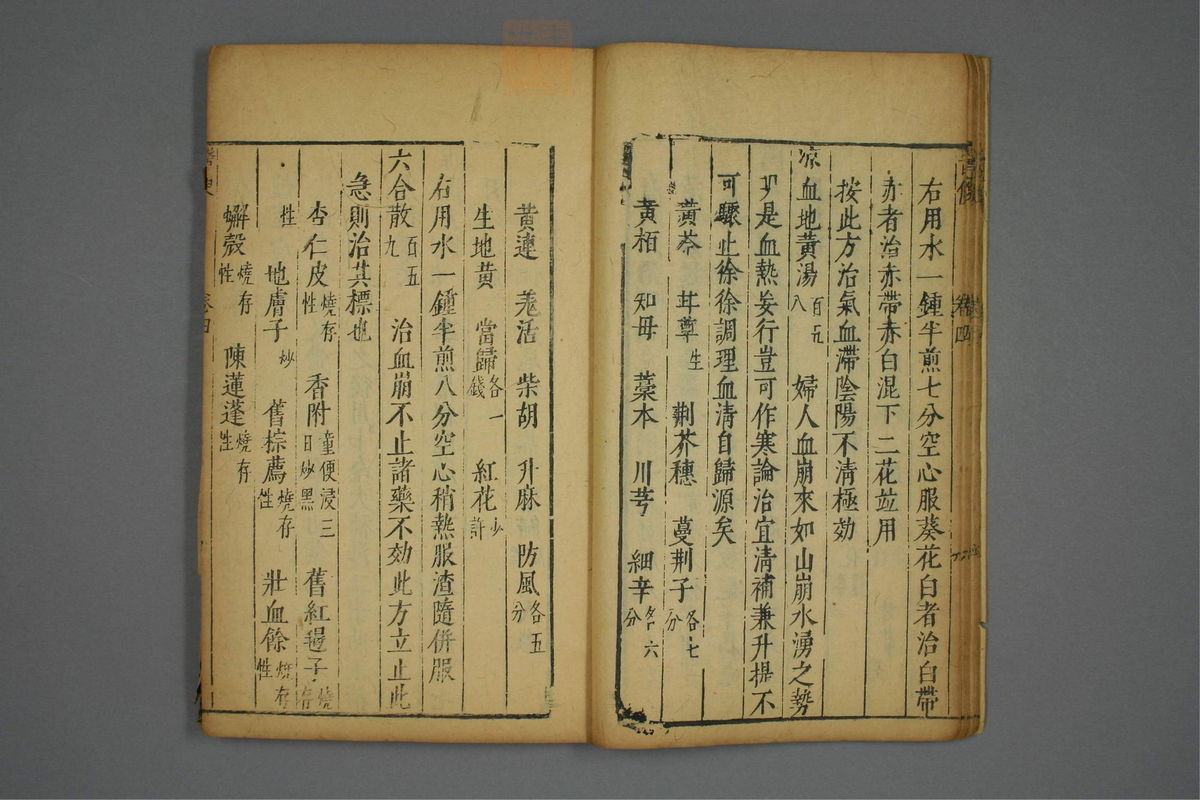 右用水一鍾半煎七分空心服葵花白者治白帶
赤者治赤帶赤白混下二花竝用
按此方治氣血滯陰陽不清極効
凉血地黃湯 百五八 婦人血崩來如山崩水湧之勢
乃是血熱妄行豈可作寒論治宜清補兼升提不
可驟止徐徐調理血清自歸源矣
黃芩 甘草 生 荆芥穗 蔓荆子 各七分
黃栢 知母 藁本 川芎 細辛 各六分
黃連 羌活 柴胡 升麻 防風 各五分
生地黃 當歸 各一錢 紅花 少許
右用水一鍾半煎八分空心稍熱服渣隨併服
六合散 百五九 治血崩不止諸藥不効此方立止此
急則治其標也
杏仁皮 燒存性 香附 童便浸三日炒黑 舊紅 子 燒存
性 地膚子 炒 舊棕薦 燒存性 壯血餘 燒存性
蠏殼 燒存性 陳蓮蓬 燒存性
卷四